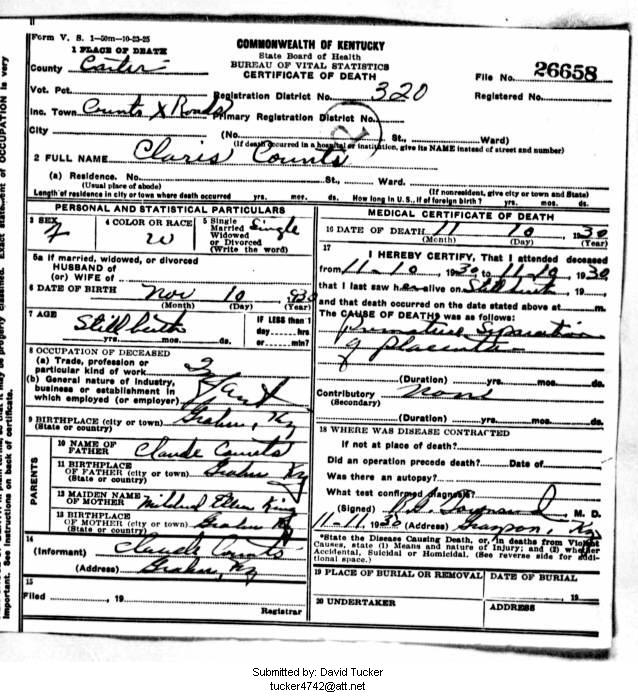 Form V. S. 1-50m-10-23-25
1 PLACE OF DEATH
COMMONWEALTH OF KENTUCKY
State Board of Health
BUREAU OF VITAL STATISTICS
CERTIFICATE OF DEATH
County Carter
File No. 26658
Vot. Pct.
Registration District No. 320
Registered No.
Inc. Town Counts X Roads
Primary Registration District No.
City
(No. St., Ward)
(If death occurred in a hospital or institution, give its NAME instead of street and number)
2 FULL NAME Claris Counts
(a) Residence. No. St., Ward.
(Usual place of abode)
(If nonresident, give city or town and State)
Length of residence in city or town where death occurred yrs. mos. ds. How long in U.S., if of foreign birth? yrs. mos. ds.
PERSONAL AND STATISTICAL PARTICULARS
3 SEX F
4 COLOR OR RACE W
5 Single Married Widowed or Divorced (Write the word) Single
5a If married, widowed, or divorced
HUSBAND of
(or) WIFE of
6 DATE OF BIRTH Nov 10 930
(Month) (Day) (Year)
7 AGE Stillbirth
yrs. mos. ds.
IF LESS than 1 day hrs or min?
8 OCCUPATION OF DECEASED
(a) Trade, profession or particular kind of work
(b) General nature of industry, business or establishment in which employed (or employer)
9 BIRTHPLACE (city or town) Grahn, Ky
(State or country)
PARENTS
10 NAME OF FATHER Claude Counts
11 BIRTHPLACE OF FATHER (city or town) Grahn Ky
(State or country)
12 MAIDEN NAME OF MOTHER Mildred Ellen King
13 BIRTHPLACE OF MOTHER (city or town) Grahn Ky
(State or country)
14
(Informant) Claude Counts
(Address) Grahn, Ky
15
Filed , 19
Registrar
MEDICAL CERTIFICATE OF DEATH
16 DATE OF DEATH 11 10 1930
(Month) (Day) (Year)
17
I HEREBY CERTIFY, That I attended deceased
from 11-10, 1930 to 11-10, 1930
that I last saw h er alive on Stillbirth, 19
and that death occurred on the date stated above at m.
The CAUSE OF DEATH* was as follows:
Premature Separation
of placenta
(Duration) yrs. mos. ds.
Contributory None
(Secondary)
(Duration) yrs. mos. ds.
18 WHERE WAS DISEASE CONTRACTED
If not at place of death?
Did an operation precede death? Date of
Was there an autopsy?
What test confirmed diagnosis?
(Signed) M. D.
11-11, 1930 (Address) Grayson, Ky
*State the Disease Causing Death, or, in deaths from Violent
Causes, state (1) Means and nature of Injury; and (2) whether
Accidental, Suicidal or Homicidal. (See reverse side for addi-
tional space.)
19 PLACE OF BURIAL OR REMOVAL
DATE OF BURIAL
, 19
20 UNDERTAKER
ADDRESS
Submitted by: David Tucker
tucker4742@att.net